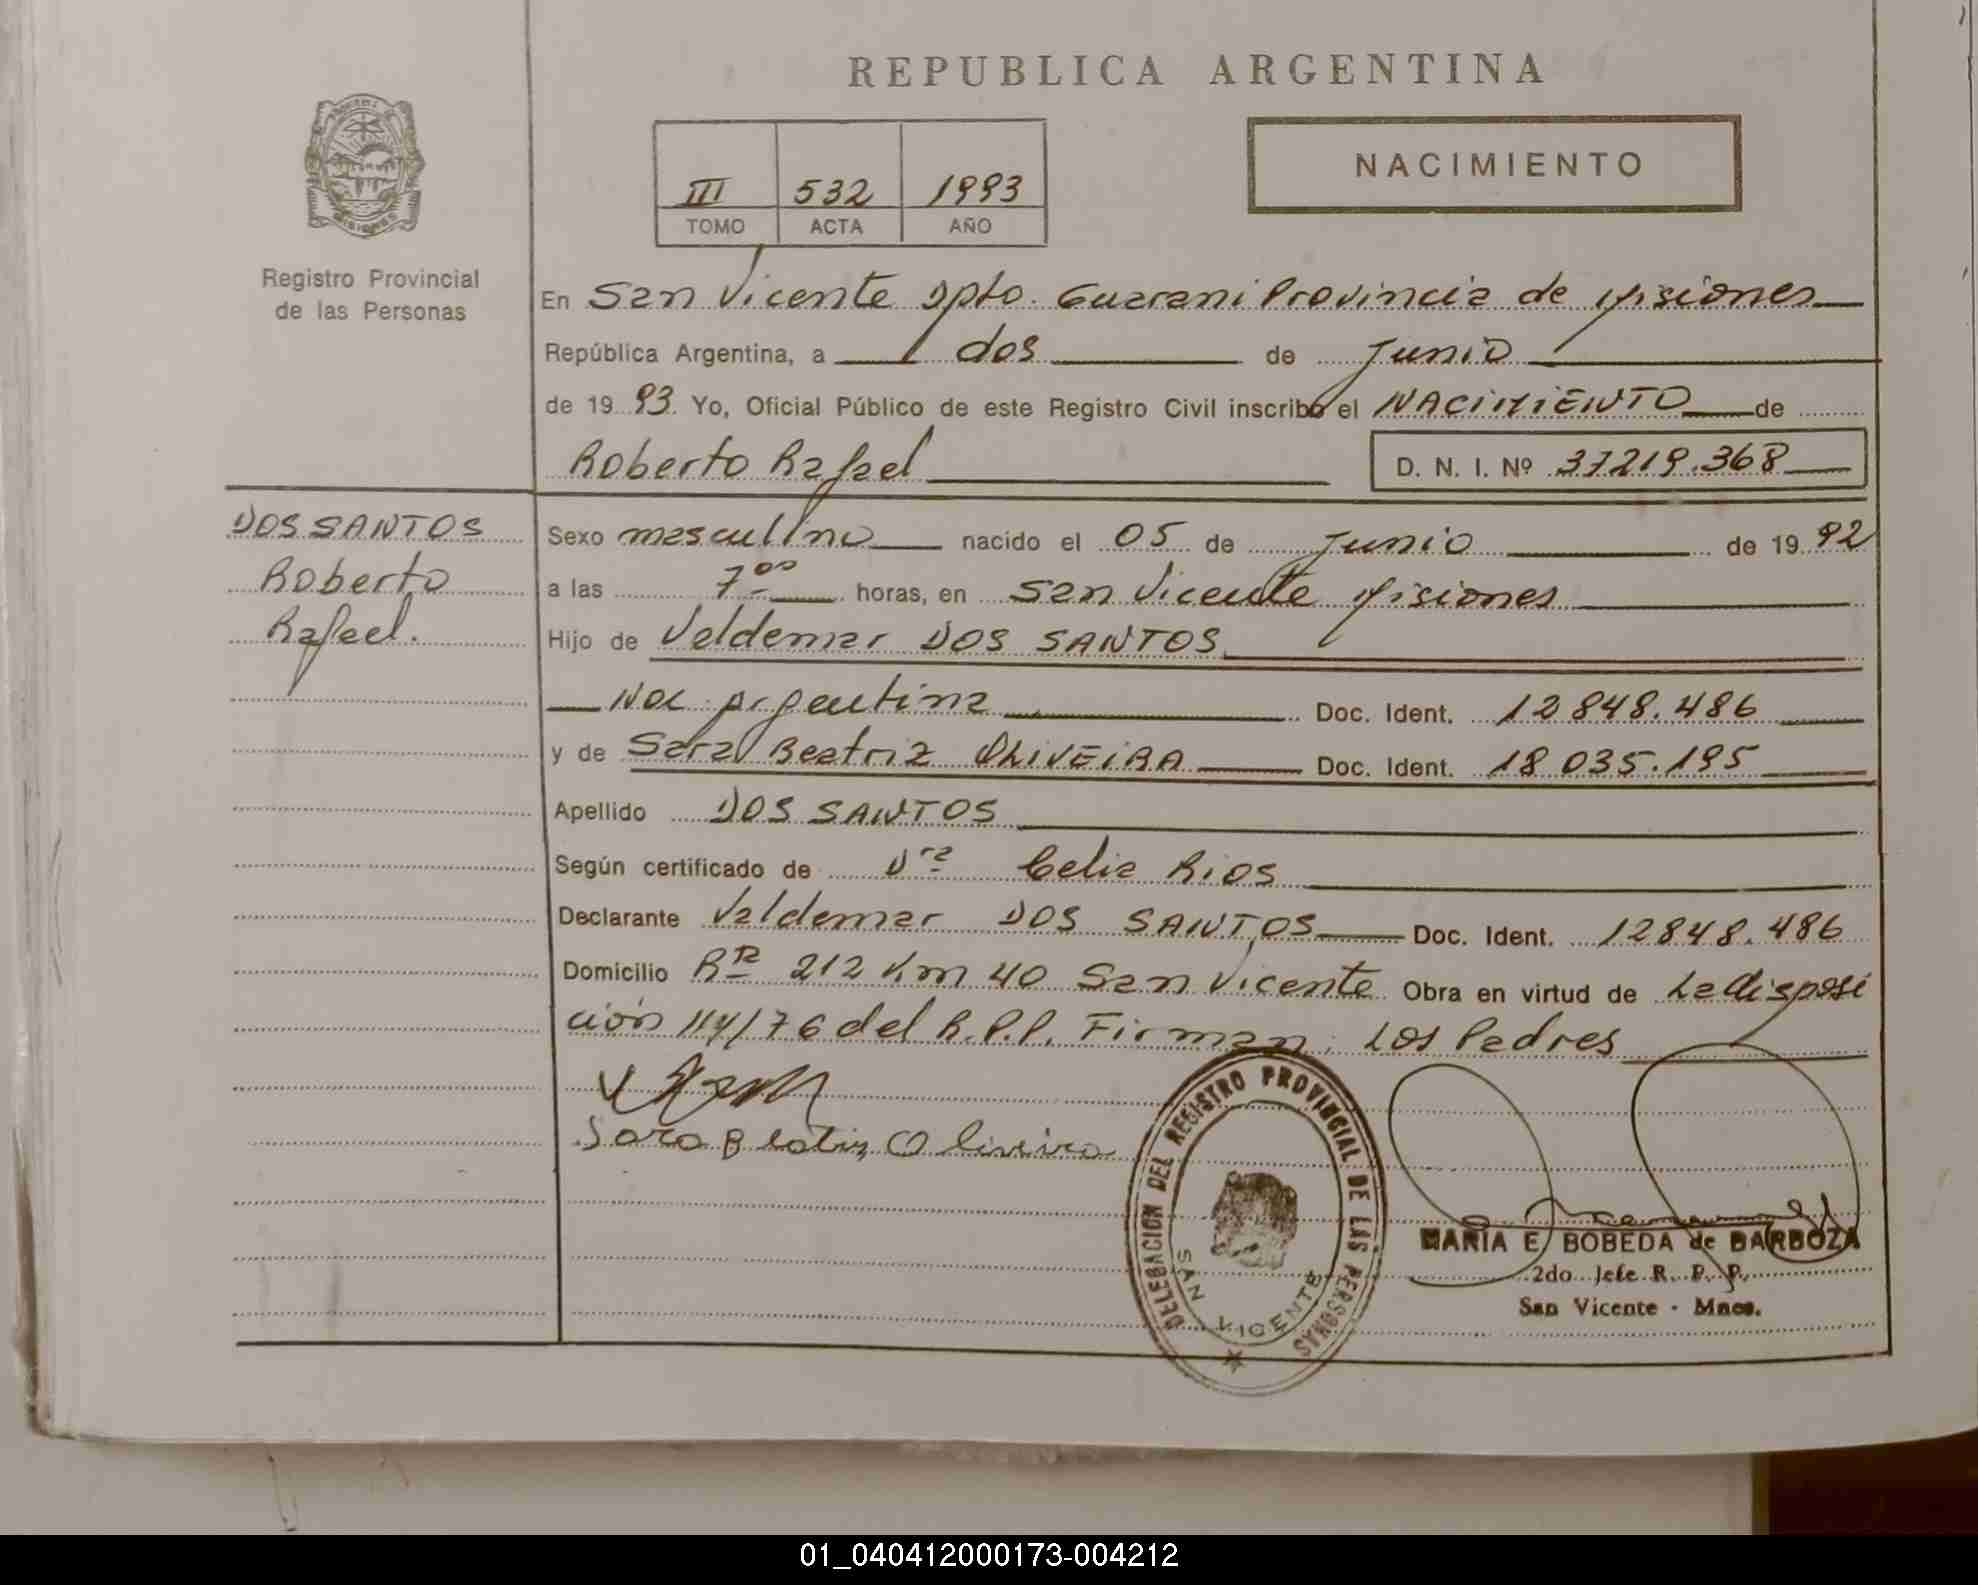 REPUBLICA ARGENTINA
NACIMIENTO
III 532 1993
TOMO ACTA AÑO
MISIONES
Registro Provincial
de las Personas
En San Vicente Dpto. Guarani Provincia de Misiones
República Argentina, a dos de Junio
de 1993 Yo, Oficial Público de este Registro Civil inscribo el NACIMIENTO de
Roberto Rafael D. N. I. Nº 37219.368
DOS SANTOS
Roberto
Rafael.
Sexo masculino nacido el 05 de Junio de 1992
a las 7⁰⁰ horas, en San Vicente Misiones
Hijo de Valdemar DOS SANTOS
Nac. Argentina Doc. Ident. 12848.486
y de Sara Beatriz OLIVEIRA Doc. Ident. 18.035.195
Apellido DOS SANTOS
Según certificado de Dra Celia Rios
Declarante Valdemar DOS SANTOS Doc. Ident. 12848.486
Domicilio 212 Km 40 San Vicente Obra en virtud de La disposi
ción 114/76 del R.P.P. Firman: Los Padres
Sara Beatriz Oliveira
DELEGACION DEL REGISTRO PROVINCIAL DE LAS PERSONAS
SAN VICENTE
MARIA E. BOBEDA de BARBOZA
2do. Jefe R. P. P.
San Vicente - Mnes.
01_040412000173-004212